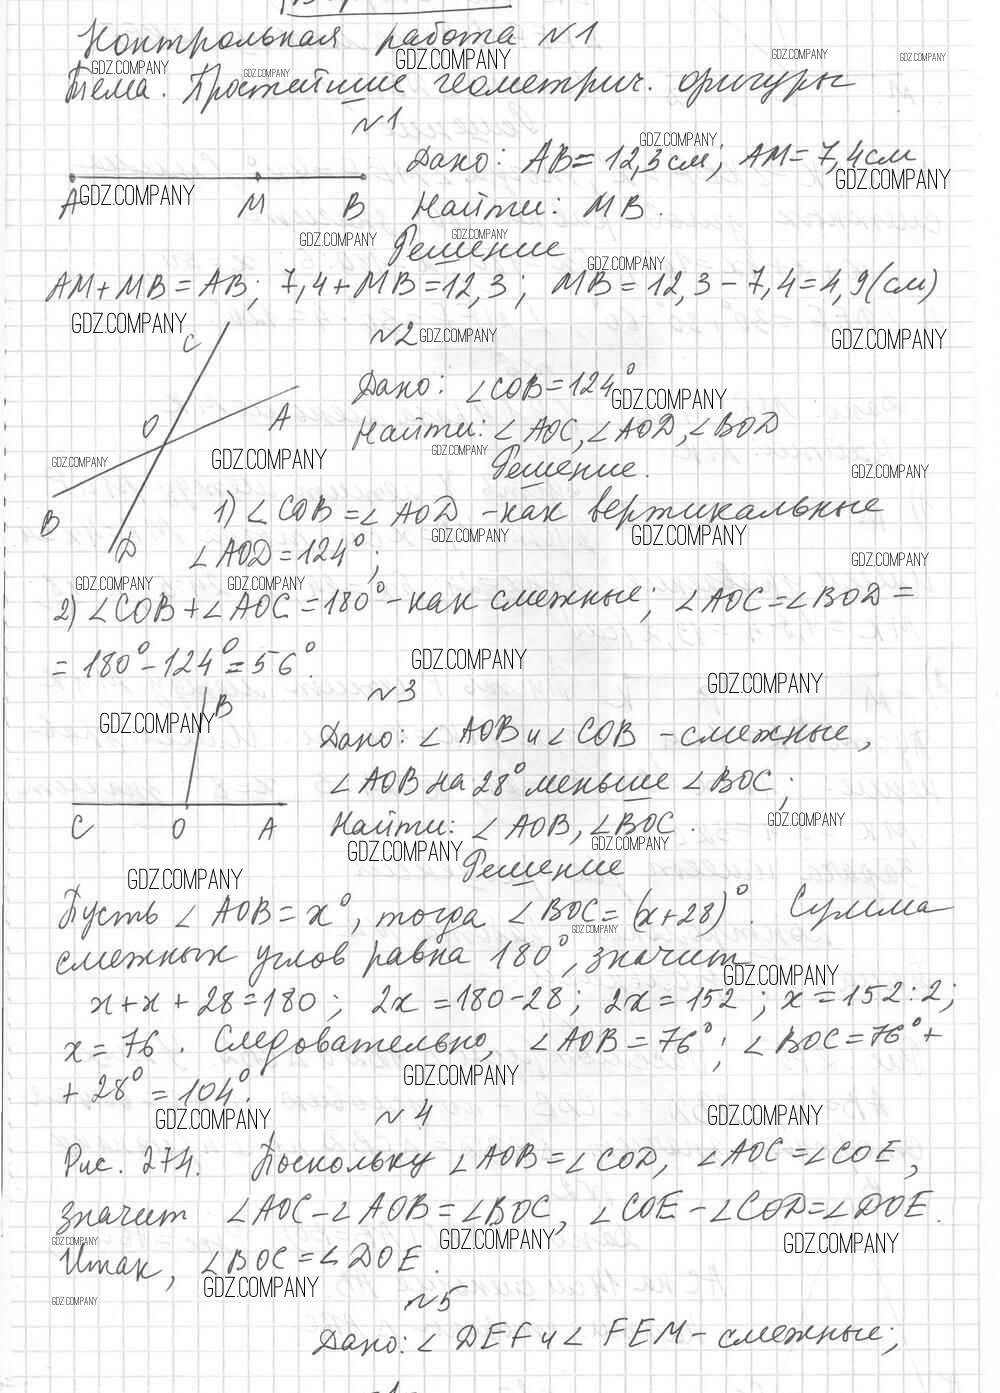 Контрольная работа №1
Тема. Простейшие геометрич. фигуры
№1
Дано: AB = 12,3 см; AM = 7,4 см
A M B Найти: MB.
Решение
AM + MB = AB; 7,4 + MB = 12,3; MB = 12,3 − 7,4 = 4,9 (см)
№2
C
Дано: ∠COB = 124°
O A
Найти: ∠AOC, ∠AOD, ∠BOD
Решение.
B
1) ∠COB = ∠AOD - как вертикальные
D ∠AOD = 124°;
2) ∠COB + ∠AOC = 180° - как смежные; ∠AOC = ∠BOD =
= 180° − 124° = 56°.
№3
B
Дано: ∠AOB и ∠COB - смежные,
∠AOB на 28° меньше ∠BOC;
C O A Найти: ∠AOB, ∠BOC.
Решение
Пусть ∠AOB = x°, тогда ∠BOC = (x+28)°. Сумма
смежных углов равна 180°, значит
x + x + 28 = 180; 2x = 180 − 28; 2x = 152; x = 152 : 2;
x = 76. Следовательно, ∠AOB = 76°; ∠BOC = 76° +
+ 28° = 104°.
№4
Рис. 274. Поскольку ∠AOB = ∠COD, ∠AOC = ∠COE,
значит ∠AOC − ∠AOB = ∠BOC, ∠COE − ∠COD = ∠DOE.
Итак, ∠BOC = ∠DOE.
№5
Дано: ∠DEF и ∠FEM - смежные;
GDZ.COMPANY